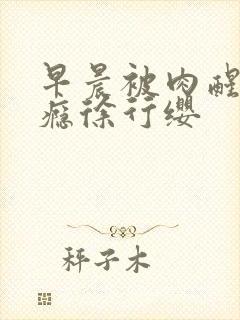 早晨被肉醒
瘾徐行缨
秤子木